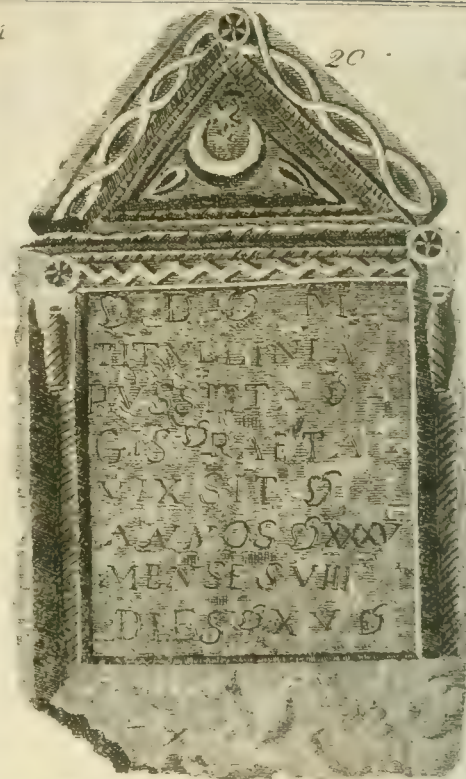 20
❧ D ❧ M
TITVLLINIA
PVSSITTA ❧
CIS ❧ RAETA
VIXSIT ❧
ANNOS ❧ XXXV
MENSES VIII
DIES ❧ XV ❧